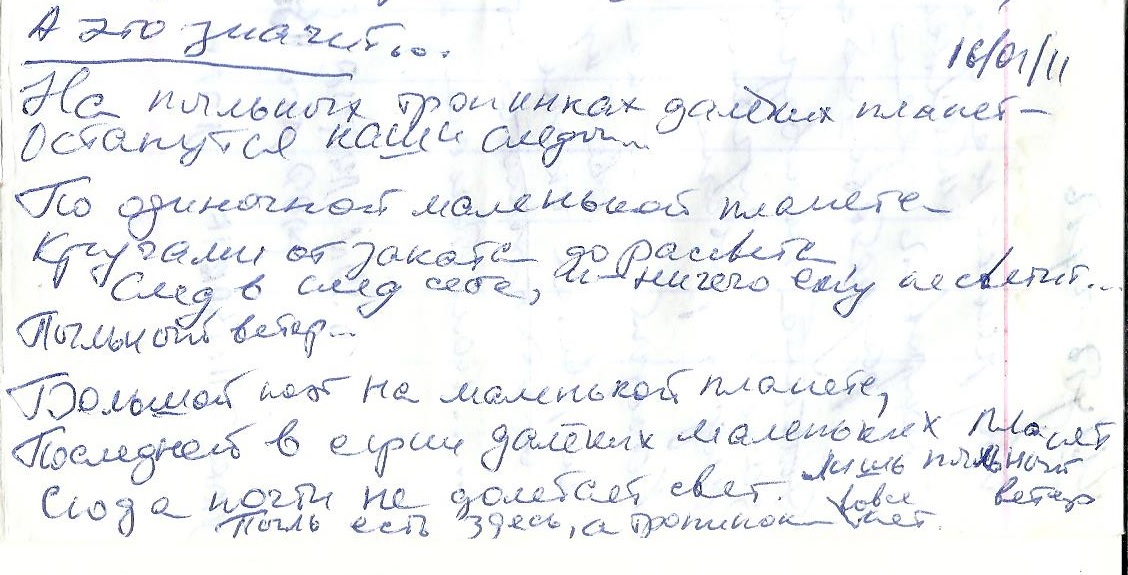 А это значит...
16/01/11
На пыльных тропинках далёких планет –
Останутся наши следы...
По одиночной маленькой планете –
Кругами от заката до рассвета
След в след себе, и ничего ему не светит...
Пыльный ветер...
Большой поэт на маленькой планете,
Последней в серии далёких маленьких планет
Сюда почти не долетает свет. Лишь пыльный ветер
Пыль есть здесь, а тропинок вовсе нет.